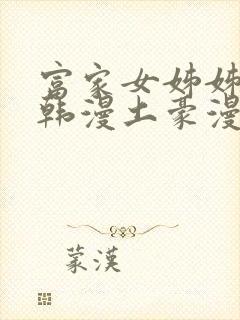 富家女姊姊
韩漫土豪漫
蒙漢